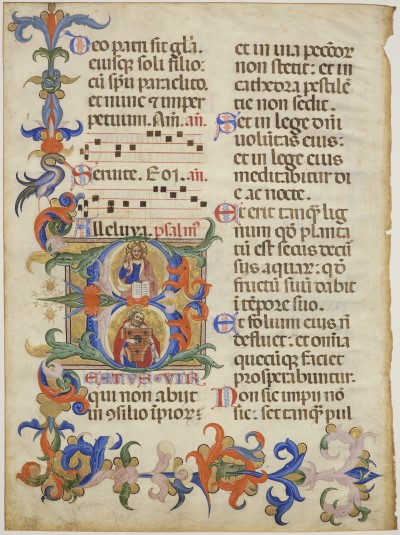 Deo patri sit gl̄a.
eiusque soli filio:
cū sp̄u paraclito.
et nunc ⁊ imper
petuum. Am̄. an̄.
Seruite. E o i. an̄.
Alleluya. psalm̄
BEATVS · VIR
qui non abijt
in ↄsilio īpior:
et in uia peccor
non stetit: et in
cathedra pestilē
tie non sedit.
Set in lege dn̄i
uolūtas eius:
et in lege eius
meditabitur di
e ac nocte.
Et erit tanq̄ lig
num qō planta
tū est secus decur
sus aquar: qō
fructū suū dabit
ī tēpore suo.
Et folium eius nō
defluet: et omīa
quecūq̄ faciet
prosperabuntur.
Non sic impij nō
sic: set tanq̄ pul